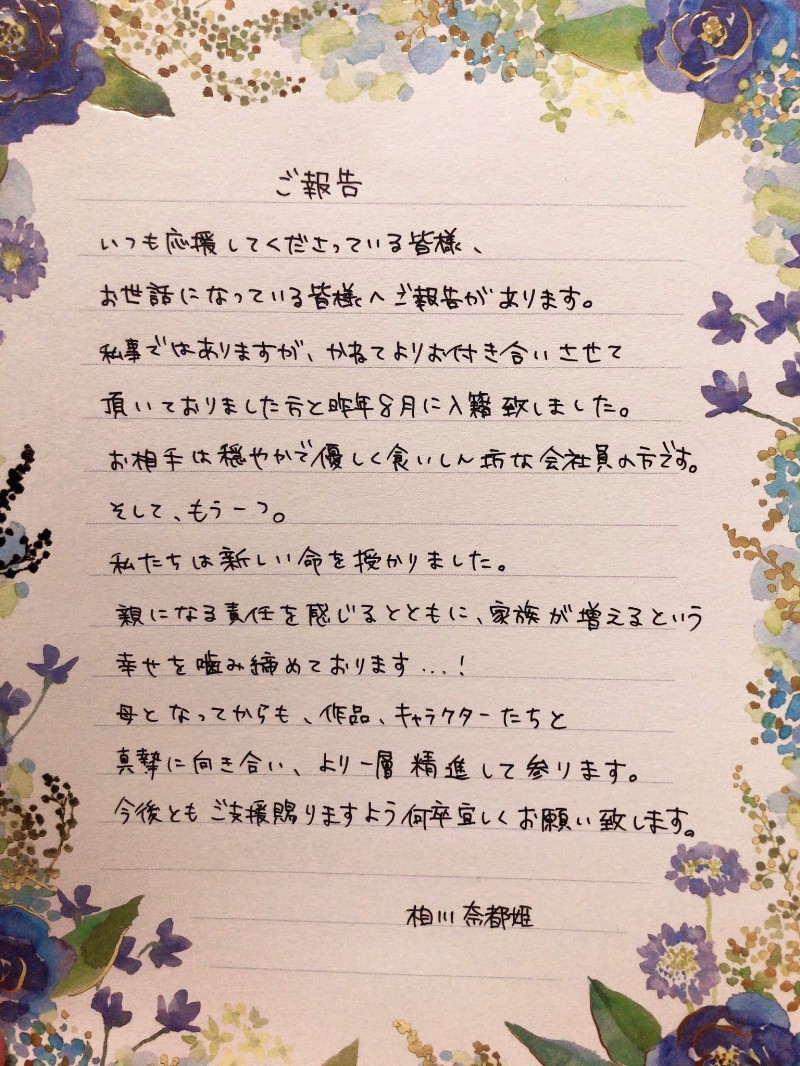 ご報告
いつも応援してくださっている皆様、
お世話になっている皆様へご報告があります。
私事ではありますが、かねてよりお付き合いさせて
頂いておりました方と昨年8月に入籍致しました。
お相手は穏やかで優しく食いしん坊な会社員の方です。
そして、もう一つ。
私たちは新しい命を授かりました。
親になる責任を感じるとともに、家族が増えるという
幸せを噛み締めております...!
母となってからも、作品、キャラクターたちと
真摯に向き合い、より一層精進して参ります。
今後ともご支援賜りますよう何卒宜しくお願い致します。
相川奈都姫